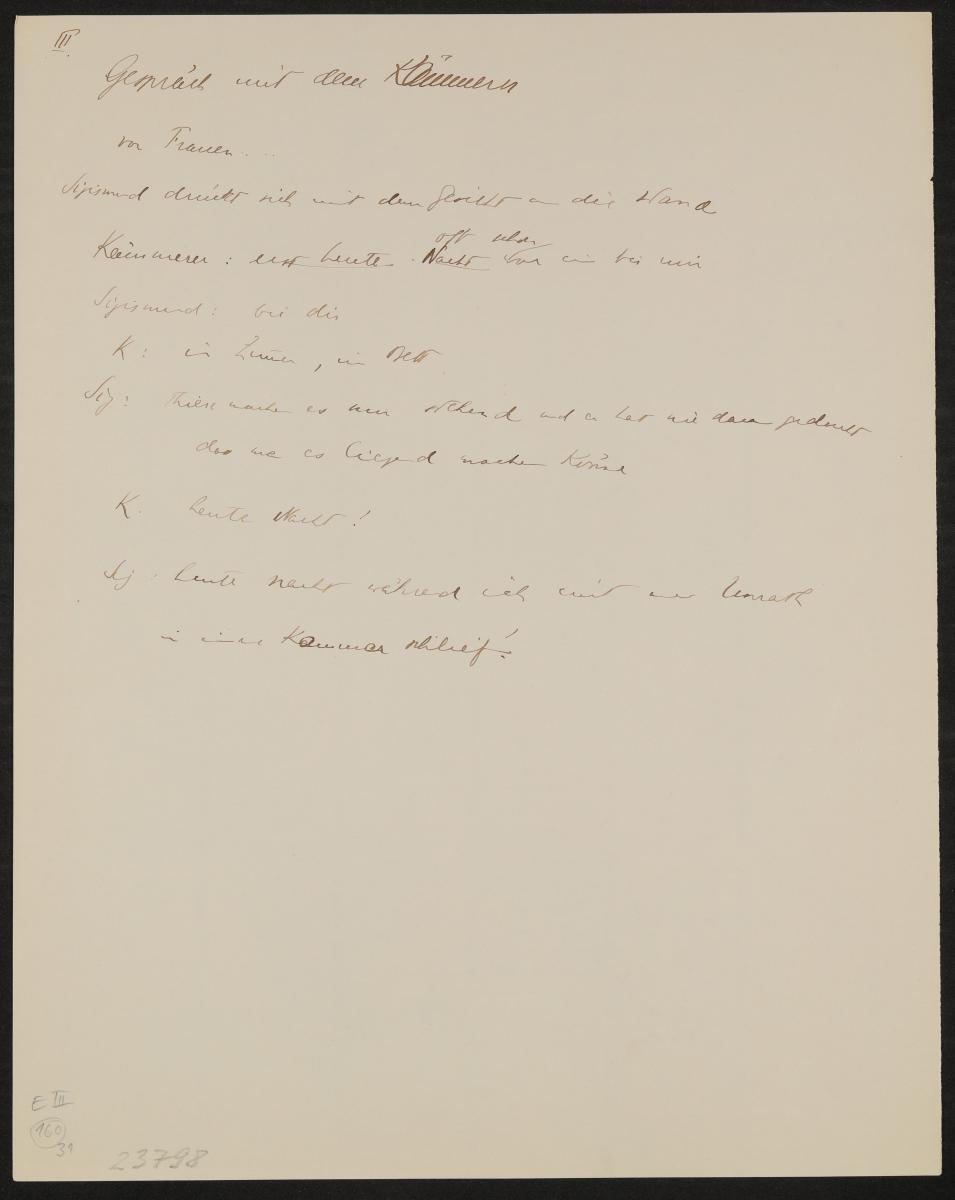 III.
Gespräch mit dem Kämmerer
von Frauen...
Sigismund drückt sich mit dem Gesicht an die Wand
oft schon
Kämmerer: erst heute Nacht war ein bei mir
Sigismund: bei dir
K: im Zimmer, im Bett
Sig: Thiere machen es nur stehend und er hat nie daran gedacht
dass man es liegend machen könne
K. heute Nacht!
Sig: heute nacht während ich mit Unrath
in einer Kammer schlief!
E III
160
31
23798